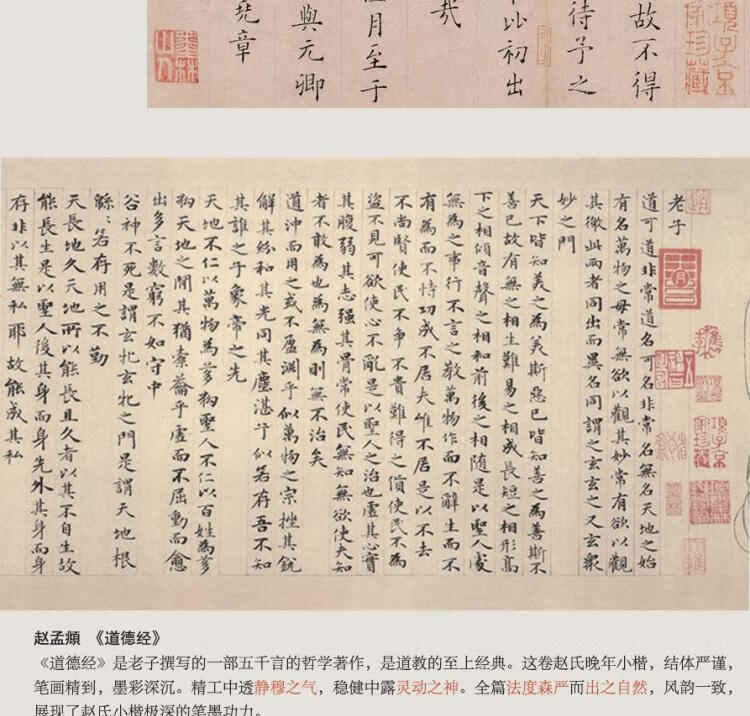 項子京
家珍藏
故不得
待予之
比初出
月至于
哉
與元卿
堯章
老子
道可道非常道名可名非常名無名天地之始
有名萬物之母常無欲以觀其妙常有欲以觀
其徼此兩者同出而異名同謂之玄玄之又玄衆
妙之門
天下皆知美之為美斯惡已皆知善之為善斯不
善已故有無之相生難易之相成長短之相形高
下之相傾音聲之相和前後之相隨是以聖人處
無為之事行不言之教萬物作而不辭生而不
有為而不恃功成不居夫惟不居是以不去
不尚賢使民不爭不貴難得之貨使民不為
盜不見可欲使心不亂是以聖人之治也虛其心實
其腹弱其志强其骨常使民無知無欲使夫知
者不敢為也為無為則無不治矣
道沖而用之或不盈淵乎似萬物之宗挫其銳
解其紛和其光同其塵湛乎似若存吾不知
其誰之子象帝之先
天地不仁以萬物為芻狗聖人不仁以百姓為芻
狗天地之間其猶橐籥乎虛而不屈動而愈
出多言數窮不如守中
谷神不死是謂玄牝玄牝之門是謂天地根
緜〻若存用之不勤
天長地久天地所以能長且久者以其不自生故
能長生是以聖人後其身而身先外其身而身
存非以其無私耶故能成其私
赵孟頫 《道德经》
《道德经》是老子撰写的一部五千言的哲学著作，是道教的至上经典。这卷赵氏晚年小楷，结体严谨，
笔画精到，墨彩深沉。精工中透静穆之气，稳健中露灵动之神。全篇法度森严而出之自然，风韵一致，
展现了赵氏小楷极深的笔墨功力。